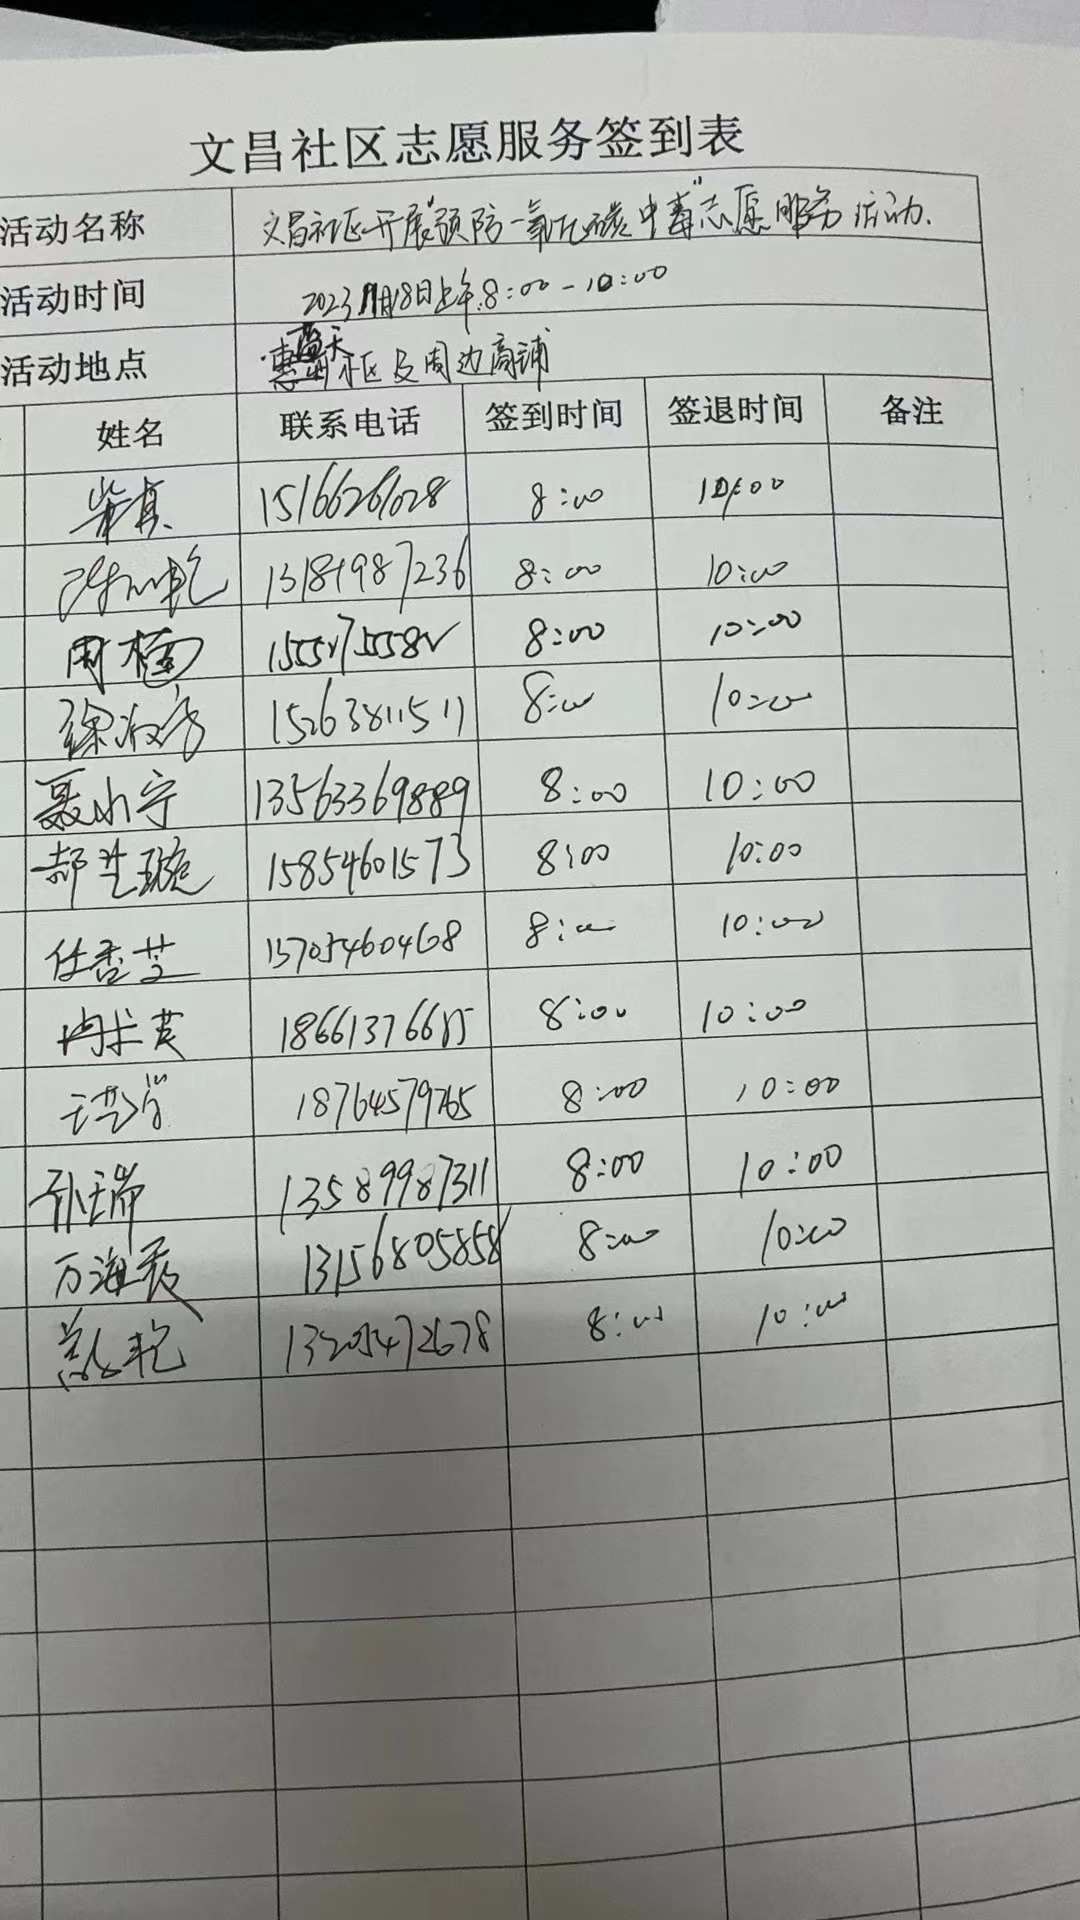 文昌社区志愿服务签到表
活动名称 文昌社区开展"预防一氧化碳中毒"志愿服务活动.
活动时间 2023 11月18日上午8:00-10:00
活动地点 蓝天社区及周边商铺
姓名 联系电话 签到时间 签退时间 备注
柴真 15166261028 8:00 10:00
13181987236 8:00 10:00
周楠 15552755582 8:00 10:00
徐淑芳 15263811511 8:00 10:00
聂小宁 13563369889 8:00 10:00
郝兰璇 15854601573 8:00 10:00
任香芝 13705460468 8:00 10:00
8:00 10:00
18764579765 8:00 10:00
孙瑞 13589987311 8:00 10:00
万海霞 13156805858 8:00 10:00
13205472678 8:00 10:00